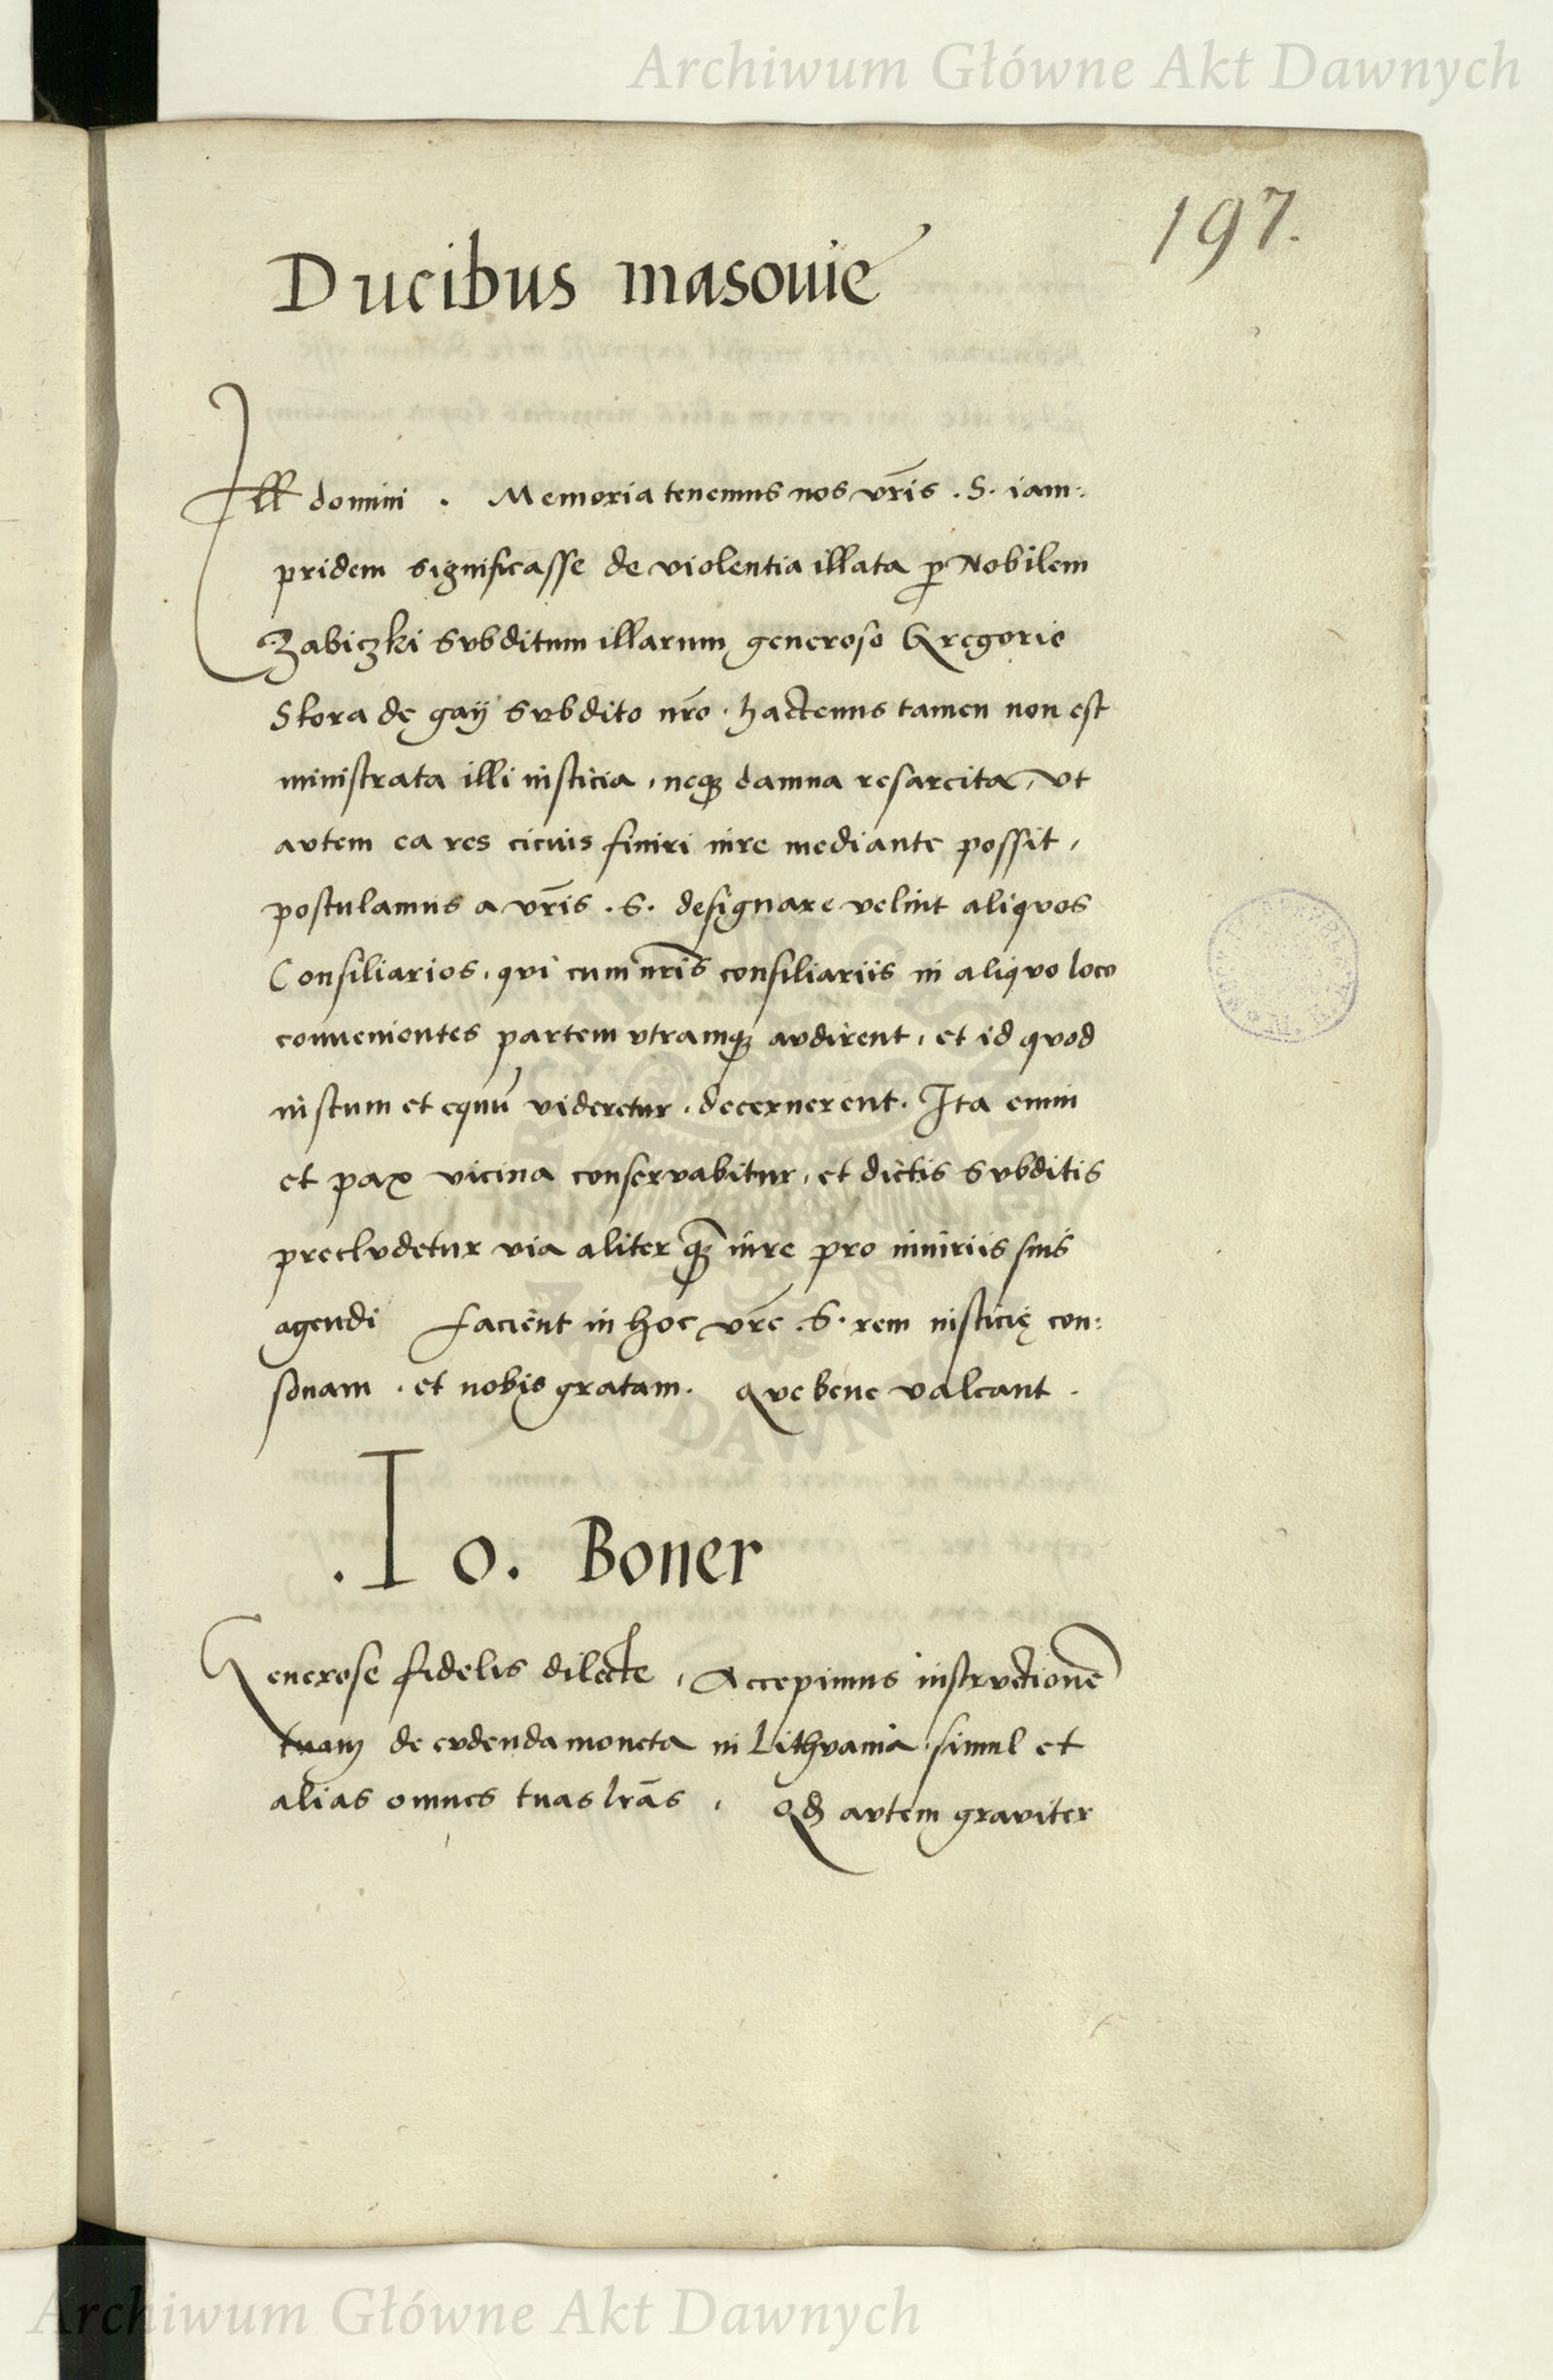 Archiwum Główne Akt Dawnych
197.
Ducibus masouie
Ill domini . Memoria tenemus nos vr̃is . S. iam:
pridem significasse de violentia illata ꝑ Nobilem
Zabiczki subditum illarum generoso Gregorio
Skora de gaÿ subdito nr̃o . hactenus tamen non est
ministrata illi iusticia , neqꝫ damna resarcita , vt
avtem ea res cicuis finiri iure mediante possit ,
postulamus a vr̃is . S. designare velint aliqvos
Consiliarios , qvi cum nr̃is consiliariis in aliqvo loco
conuenientes partem vtramqꝫ avdirent , et id qvod
iustum et equũ videretur , decernerent . Ita enim
et pax vicina conservabitur , et dictis svbditis
preclvdetur via aliter qꝫ̃ iure pro iniuriis suis
agendi facient in hoc vr̃e . S. rem iusticię con:
sonam . et nobis gratam . Qve bene valeant .
. Io. Boner
Generose fidelis dilecte , Accepimus instrvctionẽ
tuam de cvdenda moneta in Lithvania simul et
alias omnes tuas lr̃as , Qđ avtem graviter
Archiwum Główne Akt Dawnych